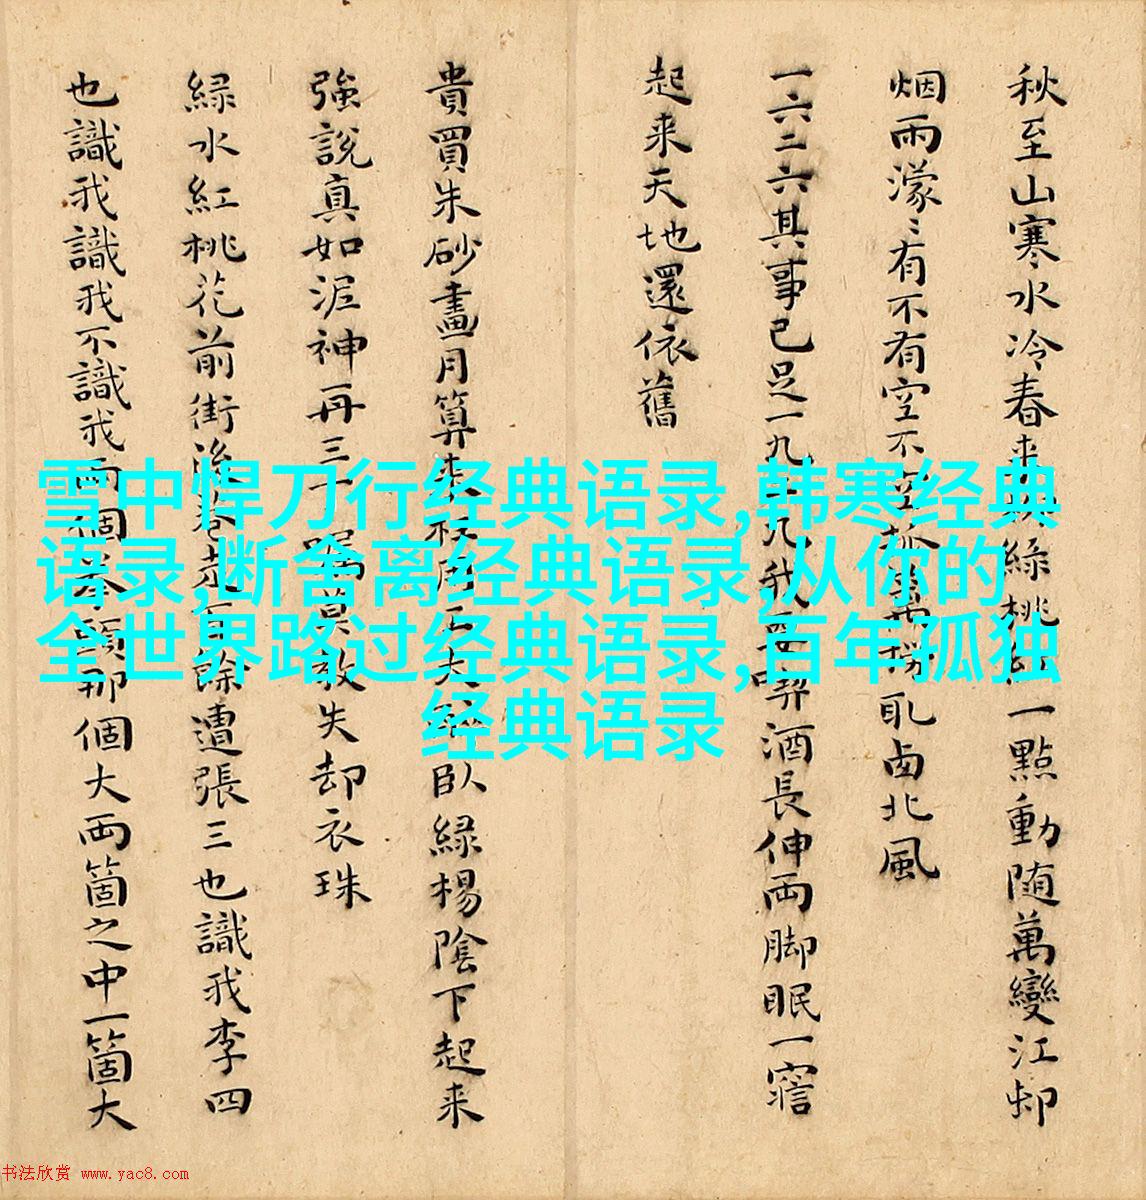 秋至山寒水冷春来
緑桃
一點動随萬變江邨
烟雨濛〻有不有空不
耴卤北風
一六二六其事已足一九
我要喫酒長伸両脚眠一㝛
起来天地還依舊
貴買朱砂畫月算来
臥緑楊陰下起来
強說真如泥神再三
嘱莫教失却衣珠
緑水紅桃花前街後巷走百餘遭張三也識我李四
也識我識我不識我両個拳頭那個大両箇之中一箇大
雪中悍刀行经典语录,韩寒经典
语录,断舍离经典语录,从你的
全世界路过经典语录,百年孤独
经典语录
书法欣赏 www.yac8.com